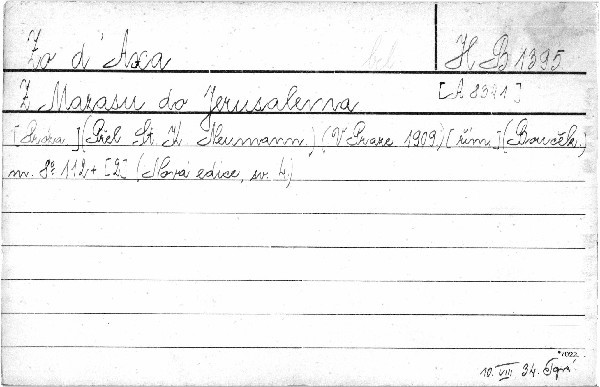 Zo d'Axa H B 1395
Z Mazasu do Jerusalema [A 8341]
[Próza] (Přel. St. K. Neumann.) (V Praze 1909) [řím.] (Bouček.)
m. 8° 112 + [2] (Nová edice, sv. 4)
10. VIII 34.